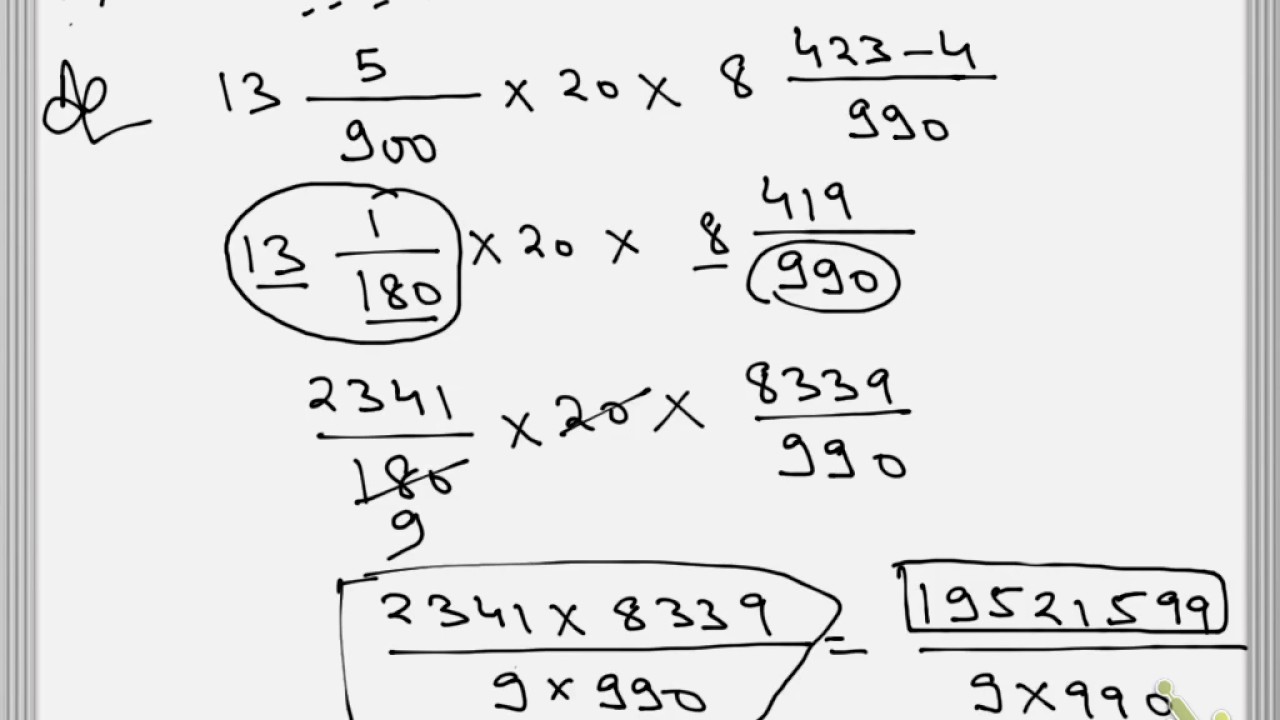 13 5/900 × 20 × 8 423-4/990
13 1/180 × 20 × 8 419/990
2341/180 × 20 × 8339/990
9
2341 × 8339/9 × 990 = 19521599/9 × 990